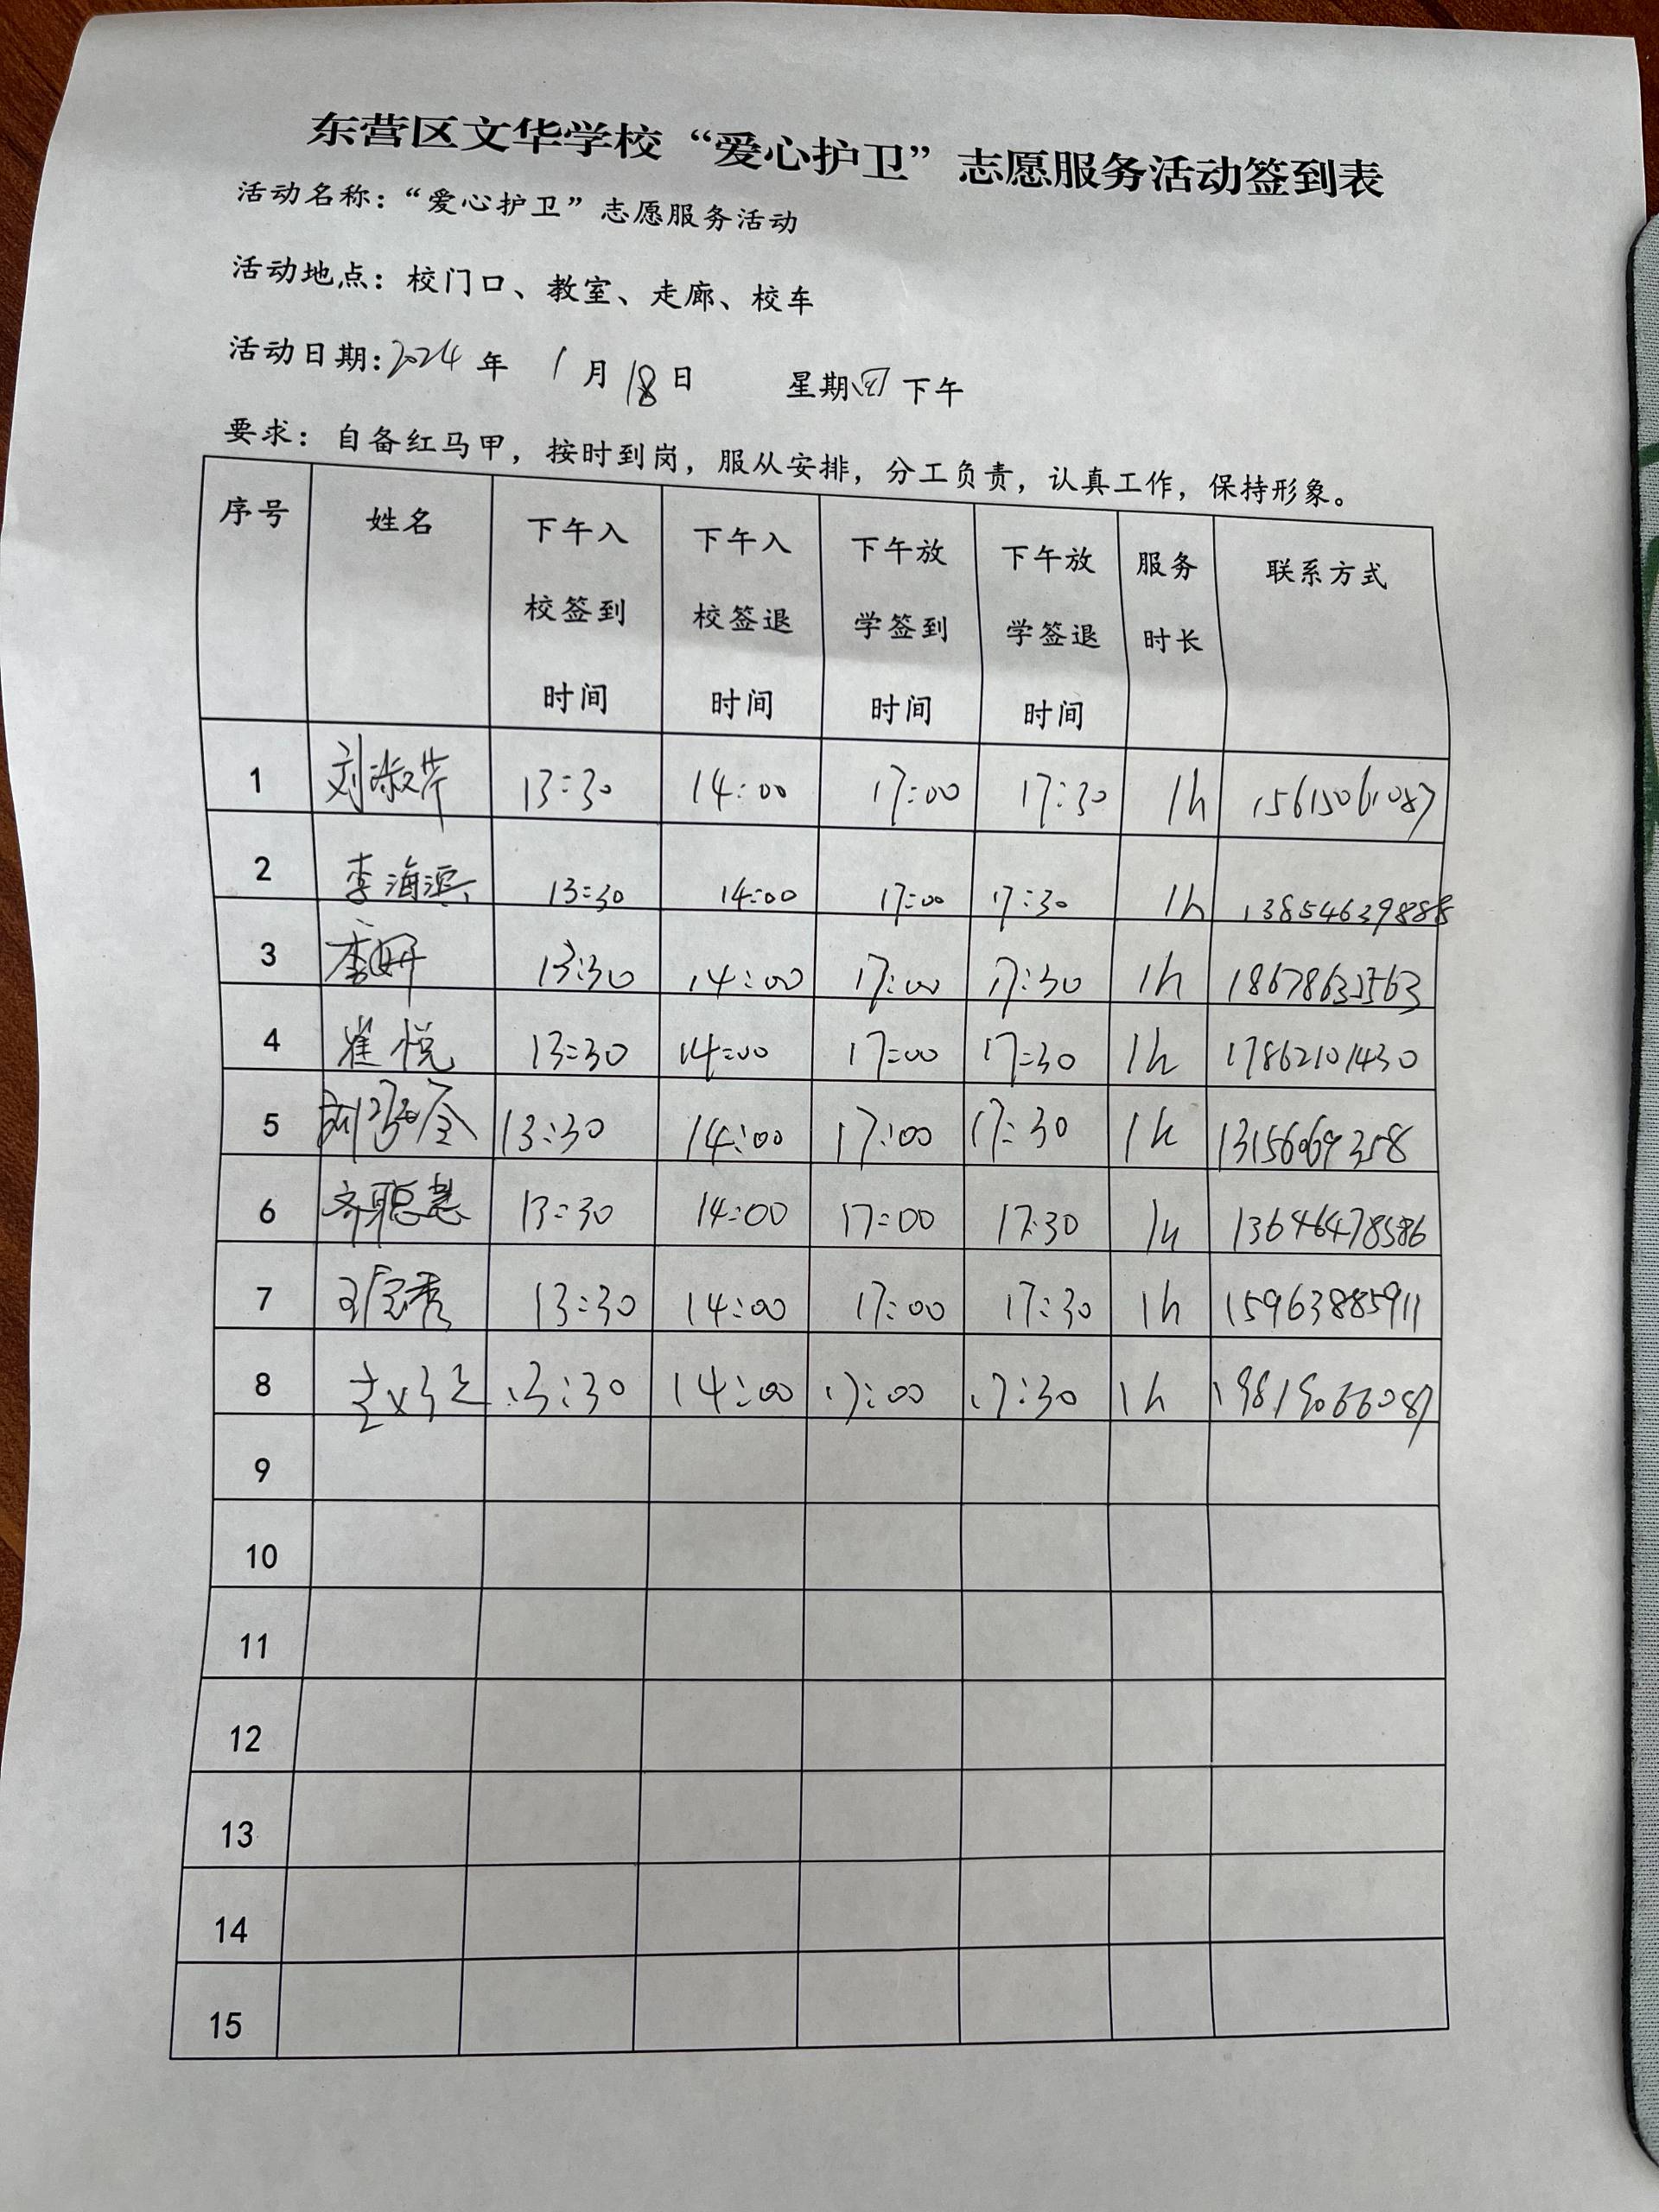 东营区文华学校“爱心护卫”志愿服务活动签到表
活动名称：“爱心护卫”志愿服务活动
活动地点：校门口、教室、走廊、校车
活动日期:2024年 1月18日 星期四下午
要求：自备红马甲，按时到岗，服从安排，分工负责，认真工作，保持形象。
序号 姓名 下午入校签到时间 下午入校签退时间 下午放学签到时间 下午放学签退时间 服务时长 联系方式
1 刘淑芹 13:30 14:00 17:00 17:30 1h 15615061087
2 李海滨 13:30 14:00 17:00 17:30 1h 13854639888
3 李妍 13:30 14:00 17:00 17:30 1h
4 崔悦 13:30 14:00 17:00 17:30 1h 17862101430
5 13:30 14:00 17:00 17:30 1h
6 齐聪慧 13:30 14:00 17:00 17:30 1h 13646478586
7 13:30 14:00 17:00 17:30 1h 15963885911
8 13:30 14:00 17:00 17:30 1h 19819066087
9
10
11
12
13
14
15